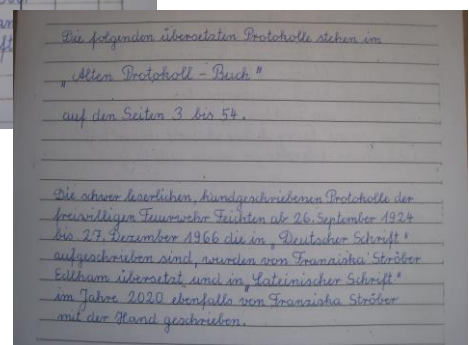 Die folgenden übersetzten Protokolle stehen im
„Alten Protokoll - Buch"
auf den Seiten 3 bis 54.
Die schwer leserlichen, handgeschriebenen Protokolle der
freiwilligen Feuerwehr Feichten ab 26. September 1924
bis 27. Dezember 1966 die in „Deutscher Schrift"
aufgeschrieben sind, wurden von Franziska Ströber
Edlham übersetzt und in „Lateinischer Schrift"
im Jahre 2020 ebenfalls von Franziska Ströber
mit der Hand geschrieben.